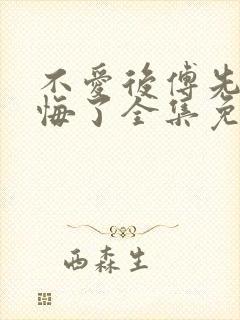 不愛後傅先
悔了全集免
西森生